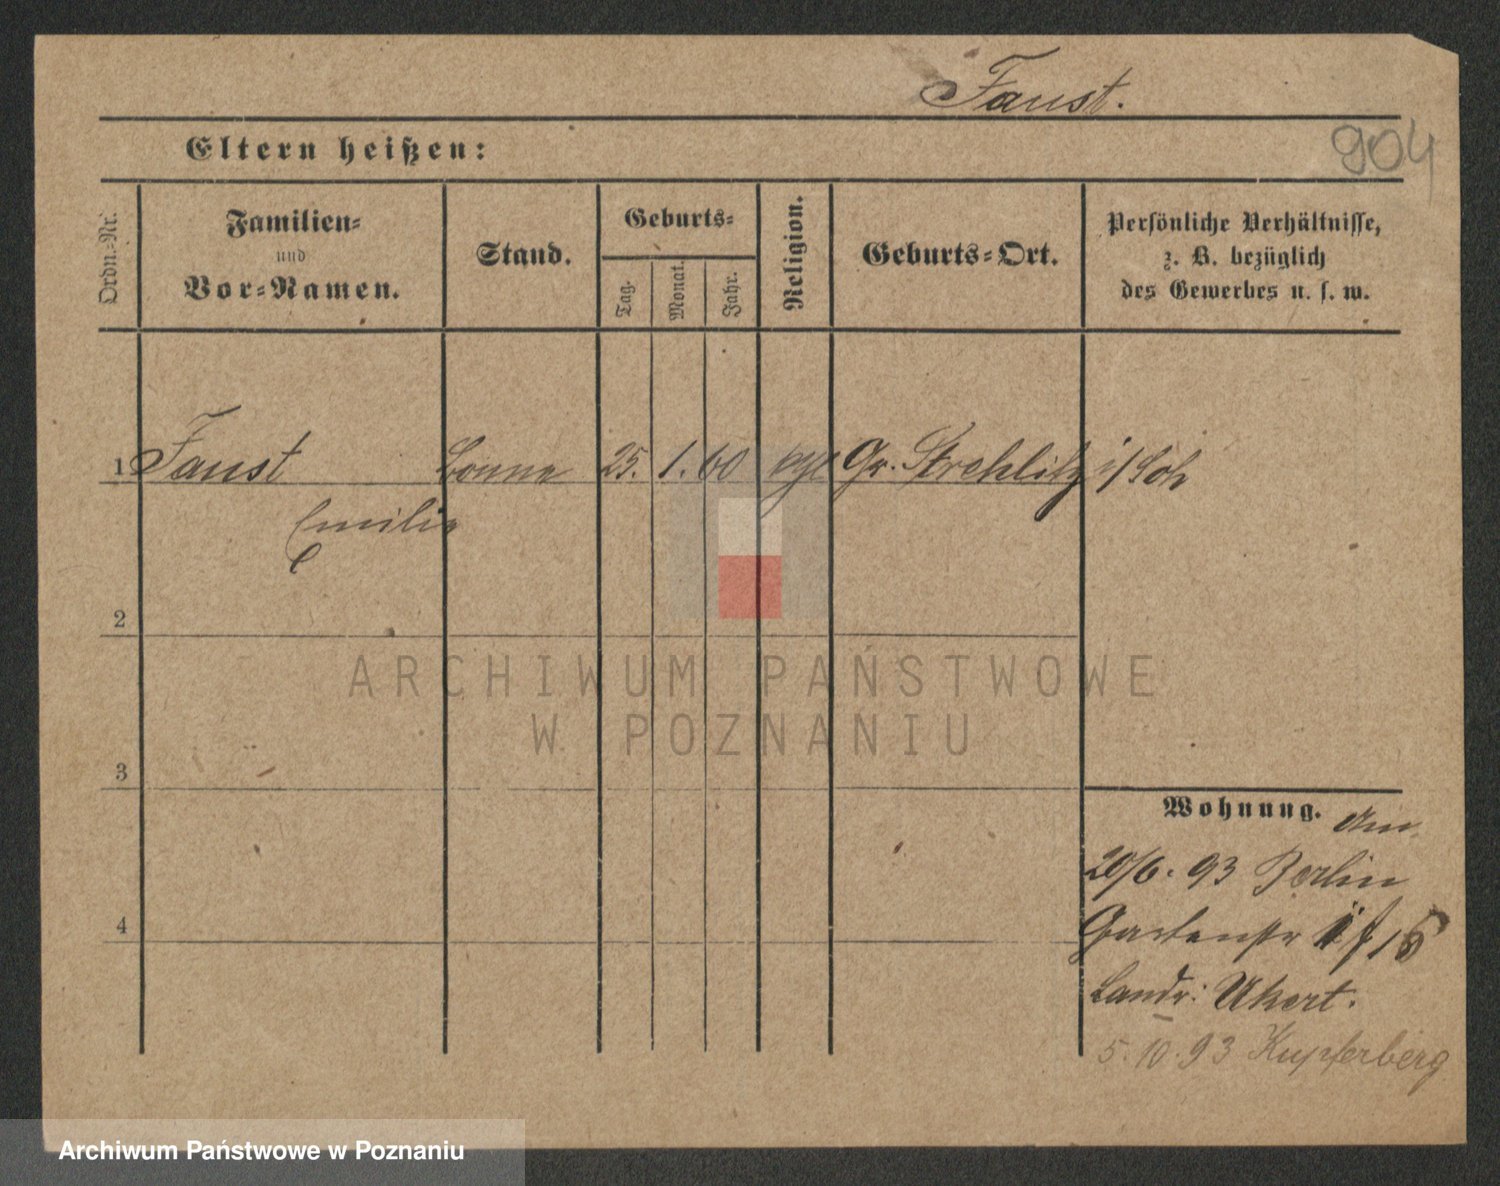 Faust.
904
Eltern heißen:
Ordn.-Nr.
Familien-
und
Vor-Namen.
Stand.
Geburts-
Tag.
Monat.
Jahr.
Religion.
Geburts-Ort.
Persönliche Verhältnisse,
z. B. bezüglich
des Gewerbes u. s. w.
1 Faust Bonne 25. 1. 60 Gr. Strehlitz i/Sch
Emilie
2
3
4
Wohnung. Am
20/6. 93 Berlin
Gartenstr
Landr: Ukert.
5.10.93 Kupferberg
ARCHIWUM PAŃSTWOWE
W POZNANIU
Archiwum Państwowe w Poznaniu